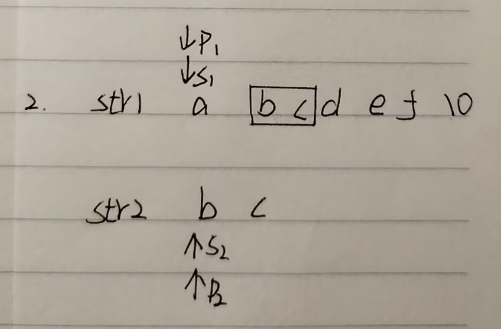 ↓P₁
↓S₁
2. str1 a b c d e f \0
str2 b c
↑S₂
↑P₂